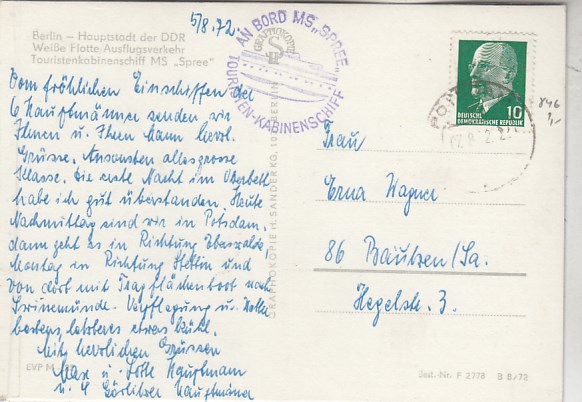 5/8.72.
Berlin – Hauptstadt der DDR
Weiße Flotte, Ausflugsverkehr
Touristenkabinenschiff MS „Spree"
Vom fröhlichen Einschiffen der
6 Hauptmänner senden wir
Ihnen u. Ihrem Mann herzl.
Grüsse. Ansonsten alles grosse
Klasse. Die erste Nacht im Oberbett
habe ich gut überstanden. Heute
Nachmittag sind wir in Potsdam,
dann geht es in Richtung Eberswalde,
Montag in Richtung Stettin und
von dort mit Tragflächenboot nach
Swinemünde. Verpflegung u.
bestens, letzteres etwas kühl.
Mit herzlichen Grüssen
Max u. Lotte Hauptmann
u. 4 Görlitzer Hauptmänner
EVP M
AN BORD MS „SPREE"
TOURISTEN-KABINENSCHIFF
GRAPHOKOPIE
GRAPHOKOPIE H. SANDER KG, BERLIN
10
DEUTSCHE
DEMOKRATISCHE REPUBLIK
Frau
Erna Wagner
86 Bautzen/Sa.
Hegelstr. 3.
Best.-Nr. F 2778 B 8/72